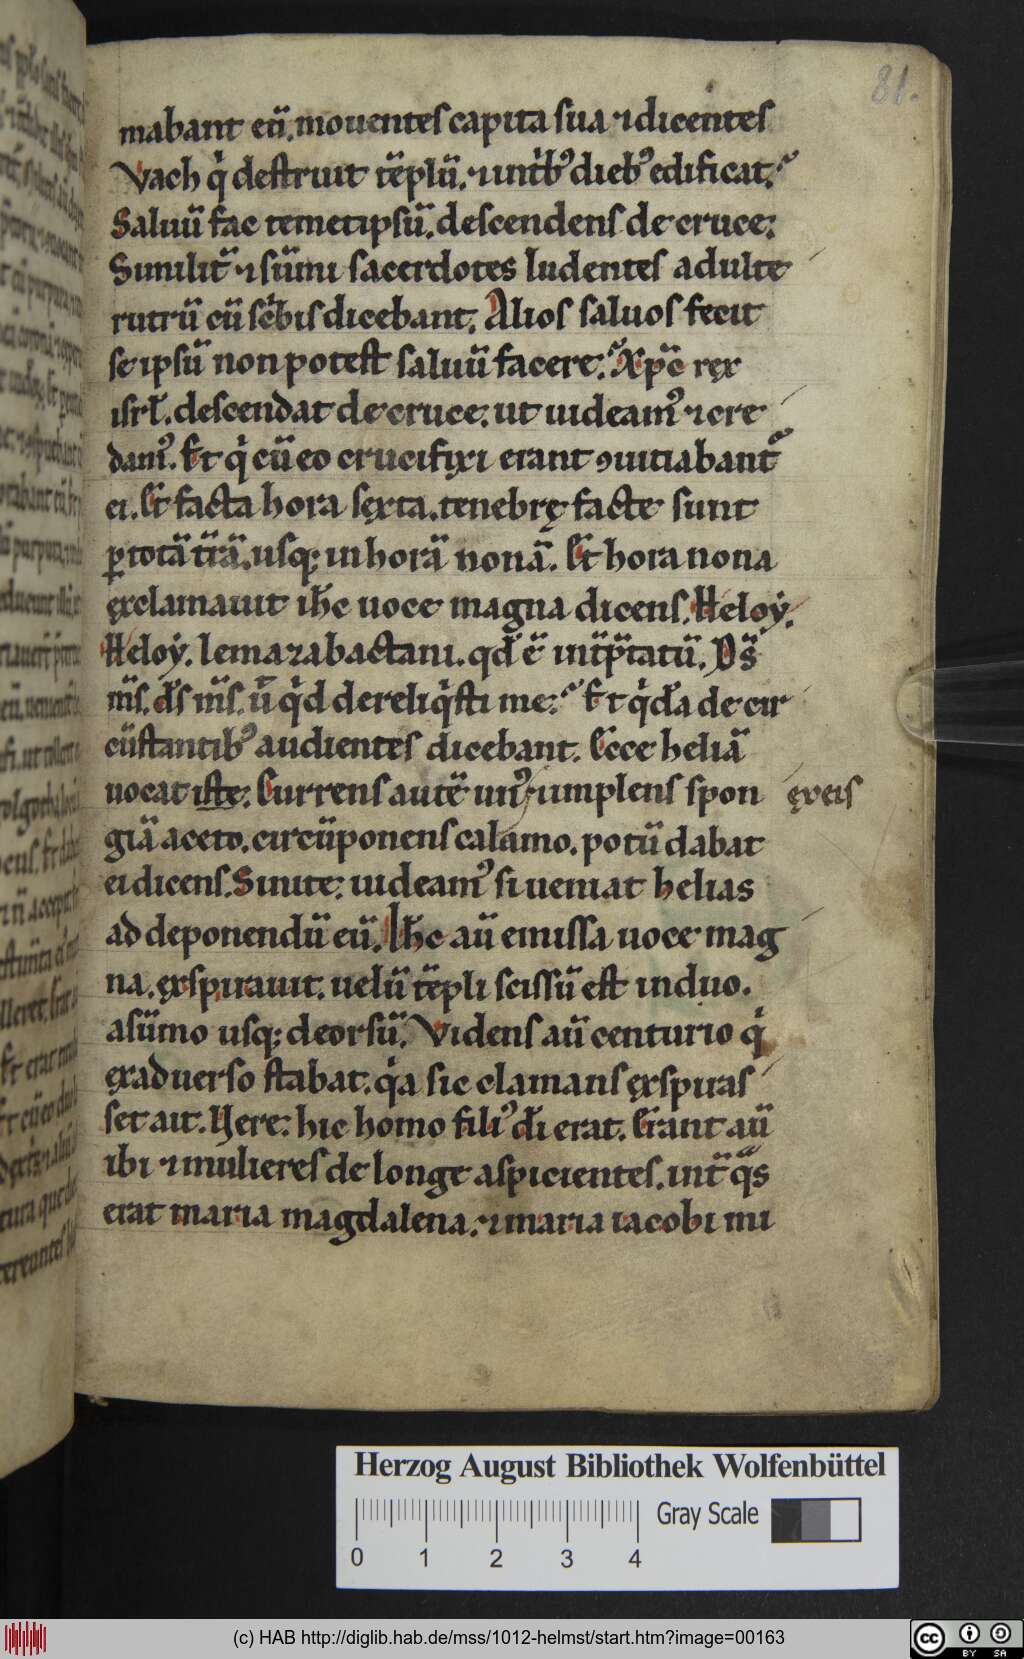 81.
mabant eū. mouentes capita sua ⁊ dicentes
Vach q̍ destruit tēplū. ⁊ intͥbꝰ diebꝰ edificat.
Saluū fac temetipsū. descendens de cruce.
Similit̄ ⁊ sūmi sacerdotes ludentes adalte
rutrū cū sc̍bis dicebant. Alios saluos fecit
se ipsū non potest saluū facere. Xp̄c rex
isrl̄. descendat de cruce. ut uideamꝰ ⁊ cre
damꝰ. Et q̍ cū eo crucifixi erant ꝯuitiabant᷑
ei. Et facta hora sexta. tenebrę facte sunt
ꝑ totā tr̄ā. usq; in horā nonā. Et hora nona
ęxclamauit ih̄c uoce magna dicens. Heloy.
Heloy. lema zabactani. qd̄ ē int̄p̄tatū. Ds̄
ms̄. ds̄ ms̄. ū q̍d dereliq̍sti me. Et q̍dā de cir
cūstantibꝰ audientes dicebant. Ecce heliā
uocat iste. Currens autē unꝰ ⁊ implens spon ęxeis
giā aceto. circūponens calamo. potū dabat
ei dicens. Sinite. uideamꝰ si ueniat helias
ad deponendū eū. Ih̄c aū emissa uoce mag
na. ęxspirauit. uelū tēpli scissū est in duo.
a sūmo usq; deorsū. Videns aū centurio q̍
ęx aduerso stabat. q̍a sic clamans ęxspiras
set ait. Uere. hic homo filiꝰ dī erat. Erant aū
ibi ⁊ mulieres de longe aspicientes. int̄ qͣs
erat maria magdalena. ⁊ maria iacobi mi
Herzog August Bibliothek Wolfenbüttel
Gray Scale
0 1 2 3 4
(c) HAB http://diglib.hab.de/mss/1012-helmst/start.htm?image=00163
cc BY SA